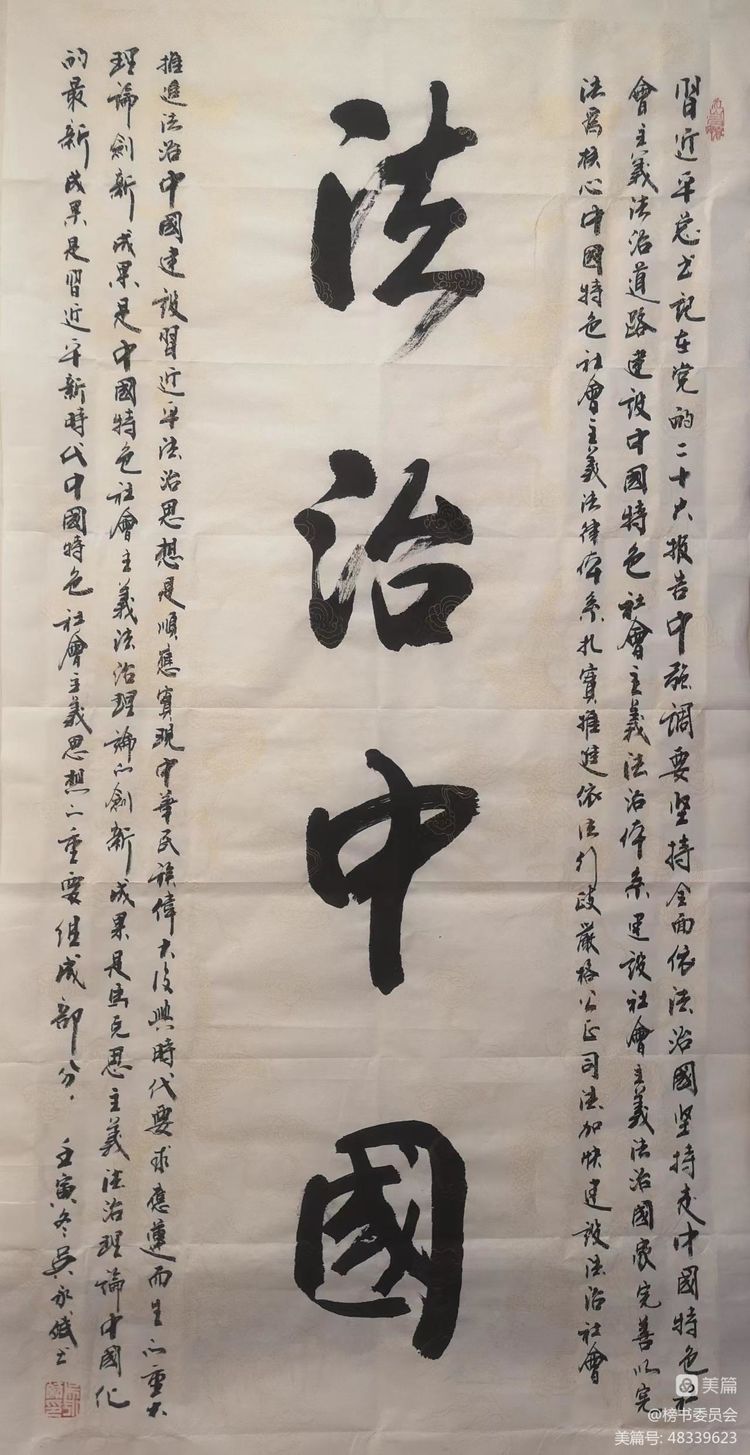 習近平总书記在党的二十大报告中強調要坚持全面依法治國坚持走中國特色社
會主義法治道路建設中國特色社會主義法治体系建設社會主義法治國家完善以宪
法爲核心中國特色社會主義法律体系扎實推進依法行政嚴格公正司法加快建設法治社會
法治中國
推進法治中國建設習近平法治思想是順應實現中華民族偉大復興時代要求應運而生的重大
理論創新成果是中國特色社會主義法治理論的創新成果是馬克思主義法治理論中國化
的最新成果是習近平新時代中國特色社會主義思想的重要組成部分。
壬寅冬吴永斌书
美篇
@榜书委员会
美篇号: 48339623